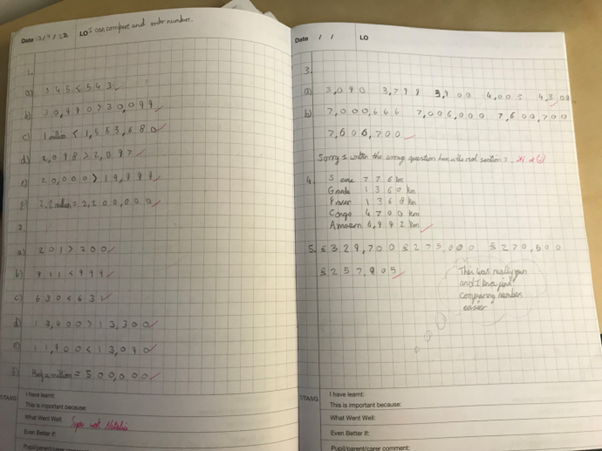 Date 13/9/22 LO I can compare and order number.
1.
a) 3 4 5 < 5 4 3
b)
c) 1 million < 1,5 5 3,6 8 0
d) 2,0 9 8 > 2,0 9 7
e) 2 0,0 0 0 > 1 9,9 9 9
f) 2.2 million = 2,2 0 0,0 0 0
2.
a) 2 0 1 > 2 0 0
b) 9 1 1 < 9 9 9
c) 6 3 0 < 6 3 1
d) 1 3,4 0 0 > 1 3,3 0 0
e) 1 1,9 0 0 < 1 3,0 9 0
f) Half a million = 5 0 0,0 0 0
I have learnt:
This is important because:
What Went Well: Super work
Even Better if:
Pupil/parent/carer comment:
Date / / LO
3.
a) 3,0 9 0 3,7 9 9 3,9 0 0 4,0 0 5
b) 7,0 0 0,6 6 6 7,0 0 6,0 0 0 7,6 0 0,7 0 0
7,6 0 6,7 0 0
Sorry I written the wrong question
4. 7 7 6 km
1 3 6 0 km
Fraser 1 3 6 8 km
Congo 4 7 0 0 km
Amazon 6,9 9 2 km
5. £ 3 2 9,7 0 0 £ 2 7 5,0 0 0 £ 2 7 0,5 0 0
£ 2 5 7,9 0 5
This was really fun
and I know find
comparing number
easier
I have learnt:
This is important because:
What Went Well:
Even Better if:
Pupil/parent/carer comment: